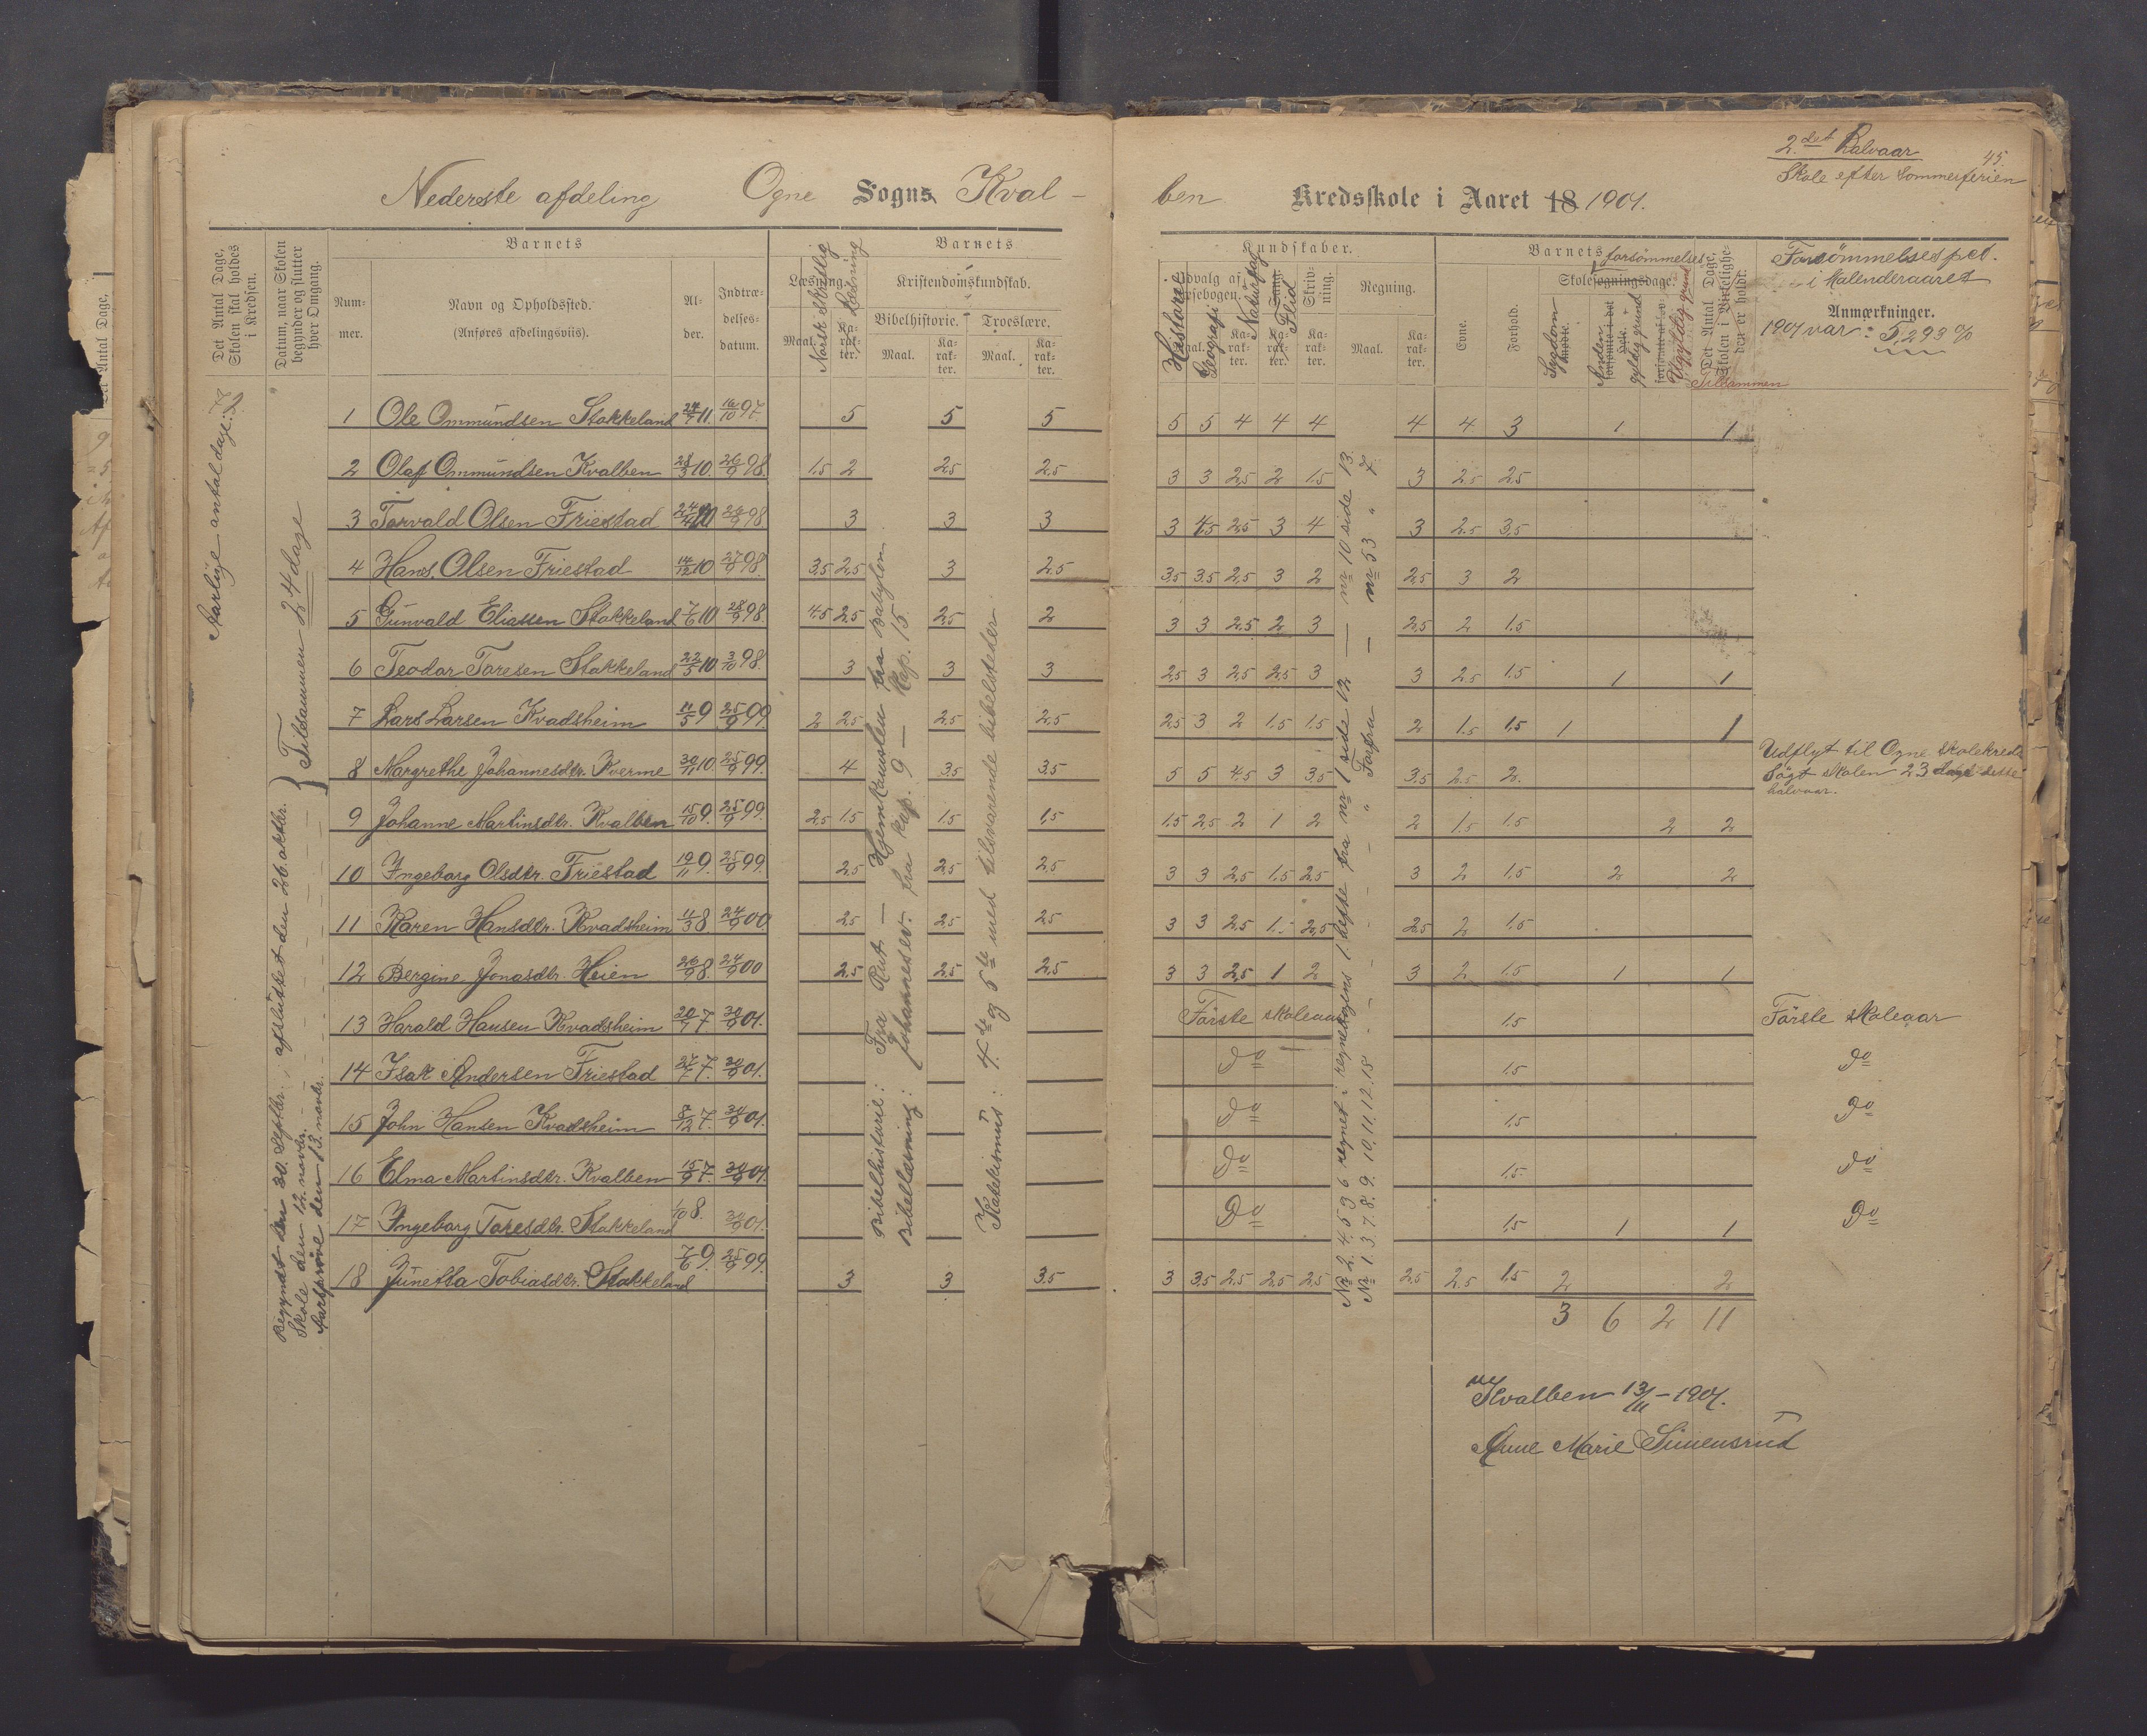 2det Halvaar
45.
Skole efter Sommerferien
Nederste afdeling Ogne Sogns Kval-
ben Kredsskole i Aaret 18 1901.
Det Antal Dage, Skolen skal holdes i Kredsen.
Datum, naar Skolen begynder og slutter hver Omgang.
Barnets
Num-mer.
Navn og Opholdssted.
(Anføres afdelingsviis).
Al-der.
Indtræ-delses-datum.
Læsning.
Maal.
Norsk skriftlig
Ka-rak-ter.
Læsning
Barnets
Kristendomskundskab.
Bibelhistorie.
Troeslære.
Maal.
Ka-rak-ter.
Maal.
Ka-rak-ter.
Kundskaber.
Udvalg af Læsebogen.
Historie
Geografi
Naturfag
Sang.
Flid
Skriv-ning.
Ka-rak-ter.
Ka-rak-ter.
Ka-rak-ter.
Regning.
Maal.
Ka-rak-ter.
Evne.
Forhold.
Barnets
forsømmelses
Skolesøgningsdage.
Sygdom
Anden gyldig grund
Ugyldig grund
Det Antal Dage, Skolen i Virkelighe-den er holdt.
Tilsammen
Forsømmelsespct.
i Kalenderaaret
Anmærkninger.
1901 var: 5,293 %
Aarlige antal dage:
Tilsammen 24 dage
Begyndt den 30. septbr. afsluttet den 26 oktbr.
Skole den 12. novbr.
Aarsprøve den 13. novbr.
Bibelhistorie: Fra Rut — Hjemkomsten fra Babylon.
Bibellæsning: Johannesev. fra kap. 9 — Kap. 15
Katekismus: 4.de og 5te med tilsvarende bibelsteder.
No 2. 4. 5 og 6 regnet i regnebogens 1. hefte fra nr 1 side 12 — nr 10 side 13.
No 1. 3. 7. 8. 9. 10. 11. 12. 18 - - - - " Forfra — nr 53 " 7.
1 Ole Ommundsen Stokkeland 24/7 11. 16/10 97. 5 5 5 5 5 4 4 4 4 4 3 1 1
2 Olaf Ommundsen Kvalben 28/3 10. 26/9 98 1.5 2 2.5 2.5 3 3 2.5 2 1.5 3 2.5 2.5
3 Torvald Olsen Friestad 24/4 26/9 98 3 3 3 3 4.5 2.5 3 4 3 2.5 3.5
4 Hans Olsen Friestad 14/12 10 27/9 98. 3.5 2.5 3 2.5 3.5 3.5 2.5 3 2 2.5 3 2
5 Gunvald Eliassen Stokkeland 7/6 10 28/9 98. 4.5 2.5 2.5 2 3 3 2.5 2 3 2.5 2 1.5
6 Teodor Toresen Stokkeland 22/5 10 3/10 98. 3 3 3 2.5 3 2.5 2.5 3 3 2.5 1.5 1 1
7 Lars Larsen Kvadsheim 11/5 9 25/9 99 2 2.5 2.5 2.5 2.5 3 2 1.5 1.5 2 1.5 1.5 1 1
8 Margrethe Johannesdtr. Kverme 30/11 10. 25/9 99. 4 3.5 3.5 5 5 4.5 3 3.5 3.5 2.5 2. Udflyt til Ogne skolekreds
Søgt skolen 23 dage dette
halvaar.
9 Johanne Martinsdtr. Kvalben 15/10 9. 25/9 99. 2.5 1.5 1.5 1.5 1.5 2.5 2 1 2 2 1.5 1.5 2 2
10 Ingeborg Olsdtr. Friestad 19/11 9. 25/9 99. 2.5 2.5 2.5 3 3 2.5 1.5 2.5 3 2 1.5 2 2
11 Karen Hansdtr. Kvadsheim 11/3 8. 24/9 00 2.5 2.5 2.5 3 3 2.5 1.- 2.5 2.5 2 1.5
12 Bergine Jonasdtr. Heien 26/9 8. 24/9 00 2.5 2.5 2.5 3 3 2.5 1 2 3 2 1.5 1 1
13 Harald Hansen Kvadsheim 20/7 7 30/9 01. Første skoleaar 1.5 Første skoleaar
14 Isak Andersen Friestad 27/7 7. 30/9 01. Do 1.5 Do
15 John Hansen Kvadsheim 8/12 7. 30/9 01. Do 1.5 Do
16 Elma Martinsdtr. Kvalben 15/9 7. 30/9 01. Do 1.5 Do
17 Ingeborg Toresdtr. Stokkeland 1/10 8. 30/9 01. Do 1.5 1 1 Do
18 Junetta Tobiasdtr. Stokkeland 7/6 9. 25/9 99. 3 3 3.5 3 3.5 2.5 2.5 2.5 2.5 2.5 1.5 2 2
3 6 2 11
Kvalben 13/11-1901.
Anne Marie Simensrud